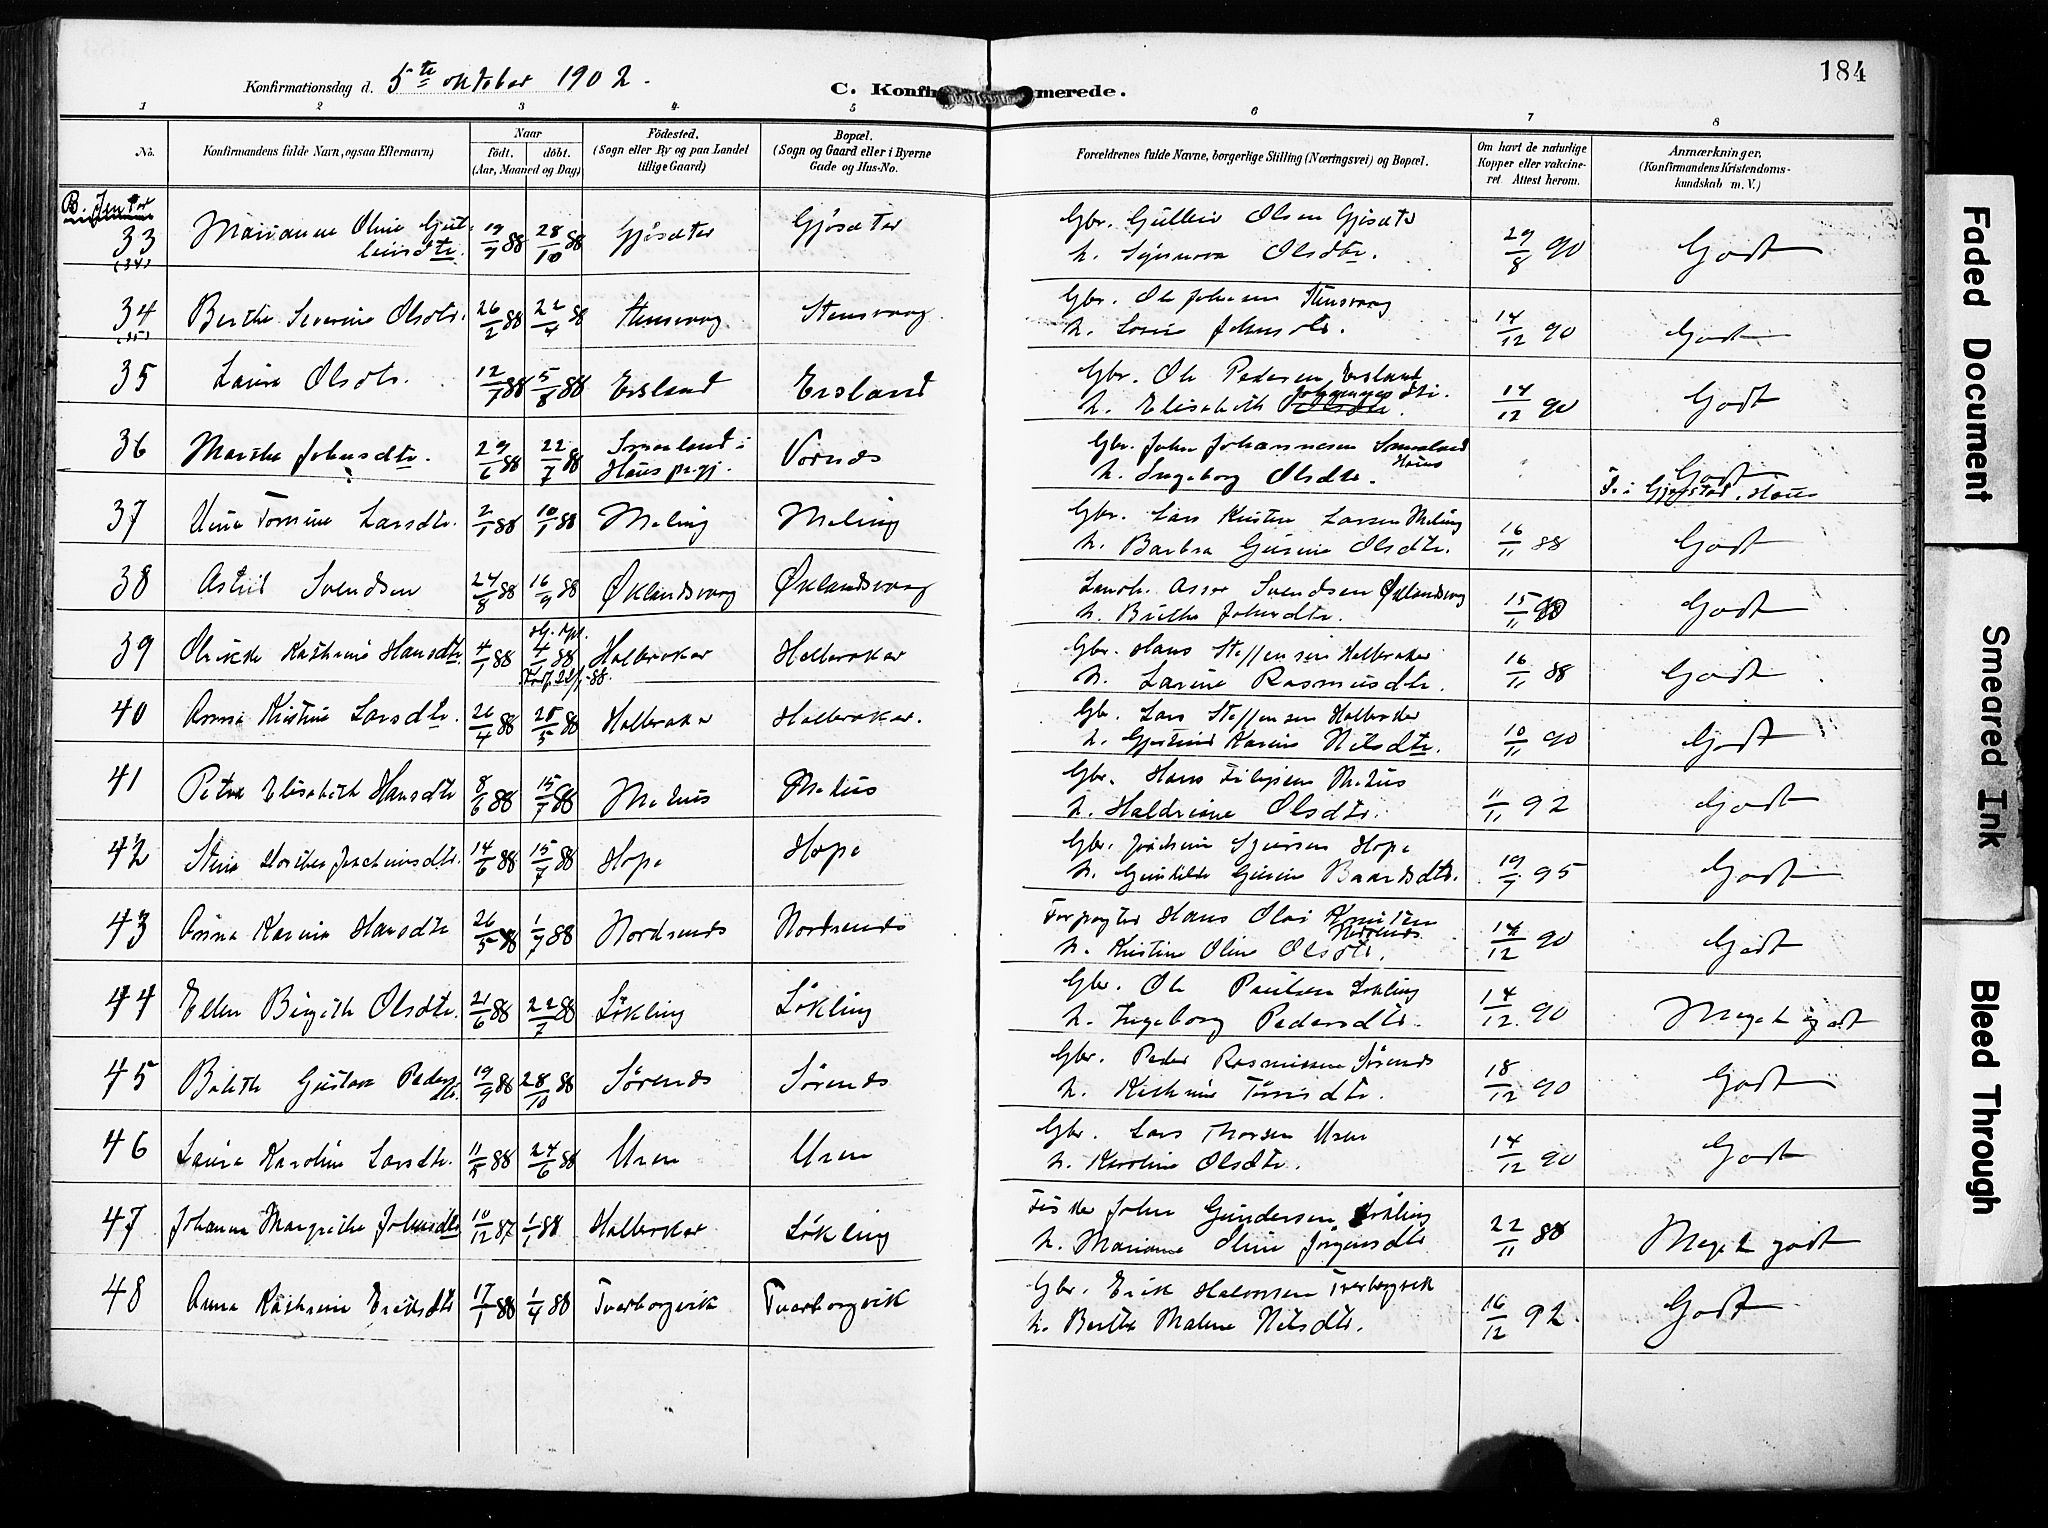 184
Konfirmationsdag d. 5te oktober 1902.
C. Konfirmerede.
1 2 3 4 5 6 7 8
No.
Konfirmandens fulde Navn, ogsaa Efternavn)
Naar
födt. döbt.
(Aar, Maaned og Dag)
Födested.
(Sogn eller By og paa Landet
tillige Gaard)
Bopæl.
(Sogn og Gaard eller i Byerne
Gade og Hus-No.
Forældrenes fulde Navne, borgerlige Stilling (Næringsvei) og Bopæl.
Om havt de naturlige
Kopper eller vakcine-
ret Attest herom.
Anmærkninger,
(Konfirmandens Kristendoms-
kundskab m. V.)
B. Jenter
33 Marianne Oline Gut-
leivsdtr. 19/9 88 28/10 88 Gjösæter Gjösæter
(34)
Gbr. Olsen Gjösæter
h. Olsdtr. 29/8 90 Godt
34 Berthe Severine Olsdtr. 26/2 88 22/4 88 Stensvaag Stensvaag
(35)
Gbr. Ole Johnsen Stensvaag
h. Johnsdtr. 14/12 90 Godt
35 Laura Olsdtr. 12/7 88 5/8 88 Ersland Ersland
Gbr. Ole Pedersen Ersland
h. Elisabeth Johannesdtr. 14/12 90 Godt
36 Marthe Johnsdtr. 29/6 88 22/7 88 i
Haus prgj. Vornes
Gbr. John Johannesen
Haus
h. Ingeborg Olsdtr. Godt
Haus
37 Larsdtr. 2/1 88 10/1 88 Meling Meling
Gbr. Lars Kristen Larsen Meling
h. Barbra Gurine Olsdtr. 16/11 88 Godt
38 Astrid Svendsen 24/8 88 16/9 88 Øklandsvaag Øklandsvaag
Landh. Asser Svendsen Øklandsvaag
h. Brithe Johnsdtr. 15/11 Godt
39 Kathrine Hansdtr. 4/1 88 4/1 88 Halleraker Halleraker
Gbr. Hans Steffensen Halleraker
h. Larine Rasmusdtr. 16/11 88 Godt
40 Anna Kristine Larsdtr. 26/4 88 20/5 88 Halleraker Halleraker.
Gbr. Lars Steffensen Halleraker
h. Karine Nilsdtr. 10/11 90 Godt
41 Petra Elisabeth Hansdtr 8/6 88 15/7 88 Mehus Mehus
Gbr. Hans Filipsen Mehus
h. Haldriane Olsdtr. 11/11 92 Godt
42 Stina Jochimsdtr. 14/6 88 15/7 88 Hope Hope
Gbr. Jochim Sjursen Hope
h. Gunhilde Gurine Baardsdtr. 19/7 95 Godt
43 Anna Karina Hansdtr 26/5 88 1/7 88 Nordrenes Nordrenes
Forpagter Hans Olai Knutsen
Nordrenes
h. Kristine Oline Olsdtr. 14/12 90 Godt
44 Ellen Birgith Olsdtr. 21/6 88 22/7 88 Løkling Løkling
Gbr. Ole Paulsen Løkling
h. Ingeborg Pedersdtr. 14/12 90 Meget godt
45 Bolette Gustava Peders-
dtr. 19/9 88 28/10 88 Sørenes Sørenes
Gbr. Peder Rasmussen Sørenes
h. Kathrine Tørrisdtr. 18/12 90 Godt
46 Laura Karoline Larsdtr. 11/5 88 24/6 88 Uren Uren
Gbr. Lars Thorsen Uren
h. Karoline Olsdtr. 14/12 90 Godt
47 Johanna Margrethe Johnsdtr 10/12 87 1/1 88 Halleraker Løkling
Fisker John Gundersen Løkling
h. Marianne Oline Jørgensdtr 22/11 88 Meget godt
48 Anna Kathrine Eriksdtr 17/1 88 1/4 88 Tverborgvik Tverborgvik
Gbr. Erik Halvorsen Tverborgvik
h. Berthe Malene Nilsdtr. 16/12 92 Godt
Faded Document
Smeared Ink
Bleed Through